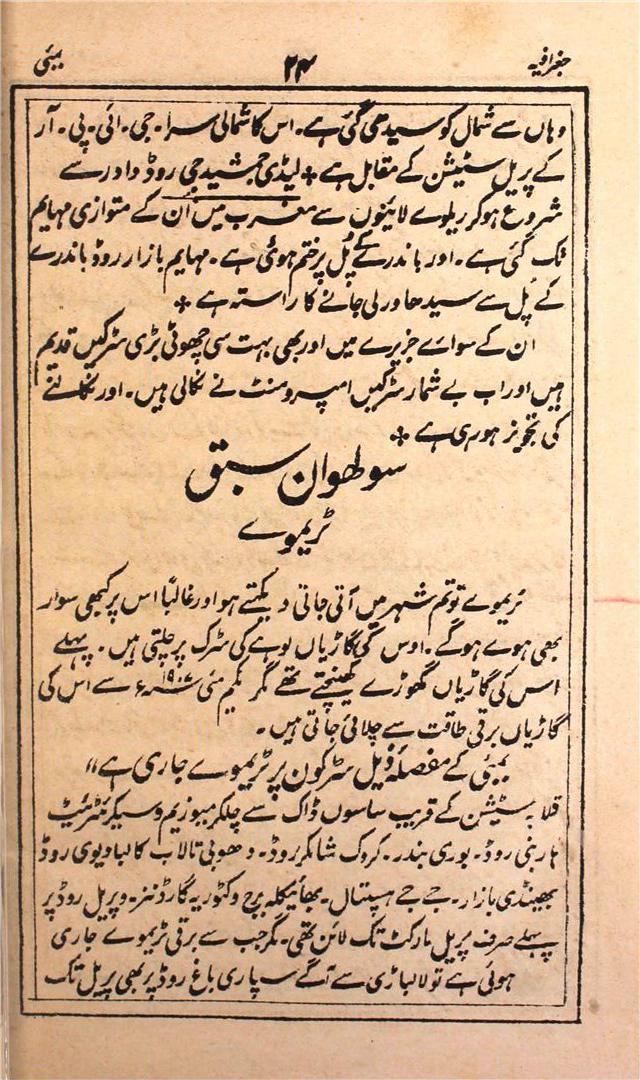 جغرافیہ ۲۴ بمبئی
وہاں سے شمال کو سیدھی گئی ہے۔ اس کا شمالی سرا۔ جی۔ ائی۔ پی۔ آر
کے پریل سٹیشن کے مقابل ہے + لیڈی جمشید جی روڈ دادر سے
شروع ہوکر ریلوے لائینوں سے مغرب میں اُن کے متوازی مہایم
تک گئی ہے۔ اور باندر کے پُل پر ختم ہوئی ہے۔ مہایم بازار روڈ باندرے
کے پُل سے سیدھا ورلی جانے کا راستہ ہے +
ان کے سواے جزیرے میں اور بھی بہت سی چھوٹی بڑی سڑکیں قدیم
ہیں اور اب بے شمار سڑکیں امپرومنٹ نے نکالی ہیں۔ اور نکالنے
کی تجویز ہورہی ہے +
سولھوان سبق
ٹریموے
ٹریموے تو تم شہر میں آتی جاتی دیکہتے ہو اور غالبًا اس پر کبھی سوار
بھی ہوے ہوگے۔ اوس کی گاڑیاں لوہے کی سڑک پر چلتی ہیں۔ پہلے
اس کی گاڑیاں گھوڑے کھینچتے تھے مگر یکم مئی ۱۹۰۷ء سے اس کی
گاڑیاں برقی طاقت سے چلائی جاتی ہیں۔
بمبئی کے مفصلۂ ذیل سڑکون پر ٹریموے جاری ہے ،،
قلابہ سٹیشن کے قریب ساسوں ڈاک سے چلکر میوزیم و سیکرٹریٹ
ہارنبی روڈ۔ بوری بندر۔ کروک شانکر روڈ۔ دھوبی تالاب کالبادیوی روڈ
بھینڈی بازار۔ جے جے ہسپتال۔ بھائیکلہ برج وکٹوریہ گارڈننز۔ و پریل روڈ پر
پہلے صرف پریل مارکٹ تک لائن تھی۔ مگر جب سے برقی ٹریموے جاری
ہوئی ہے تو لالباڑی سے آگے سپاری باغ روڈ پر بھی پریل تک